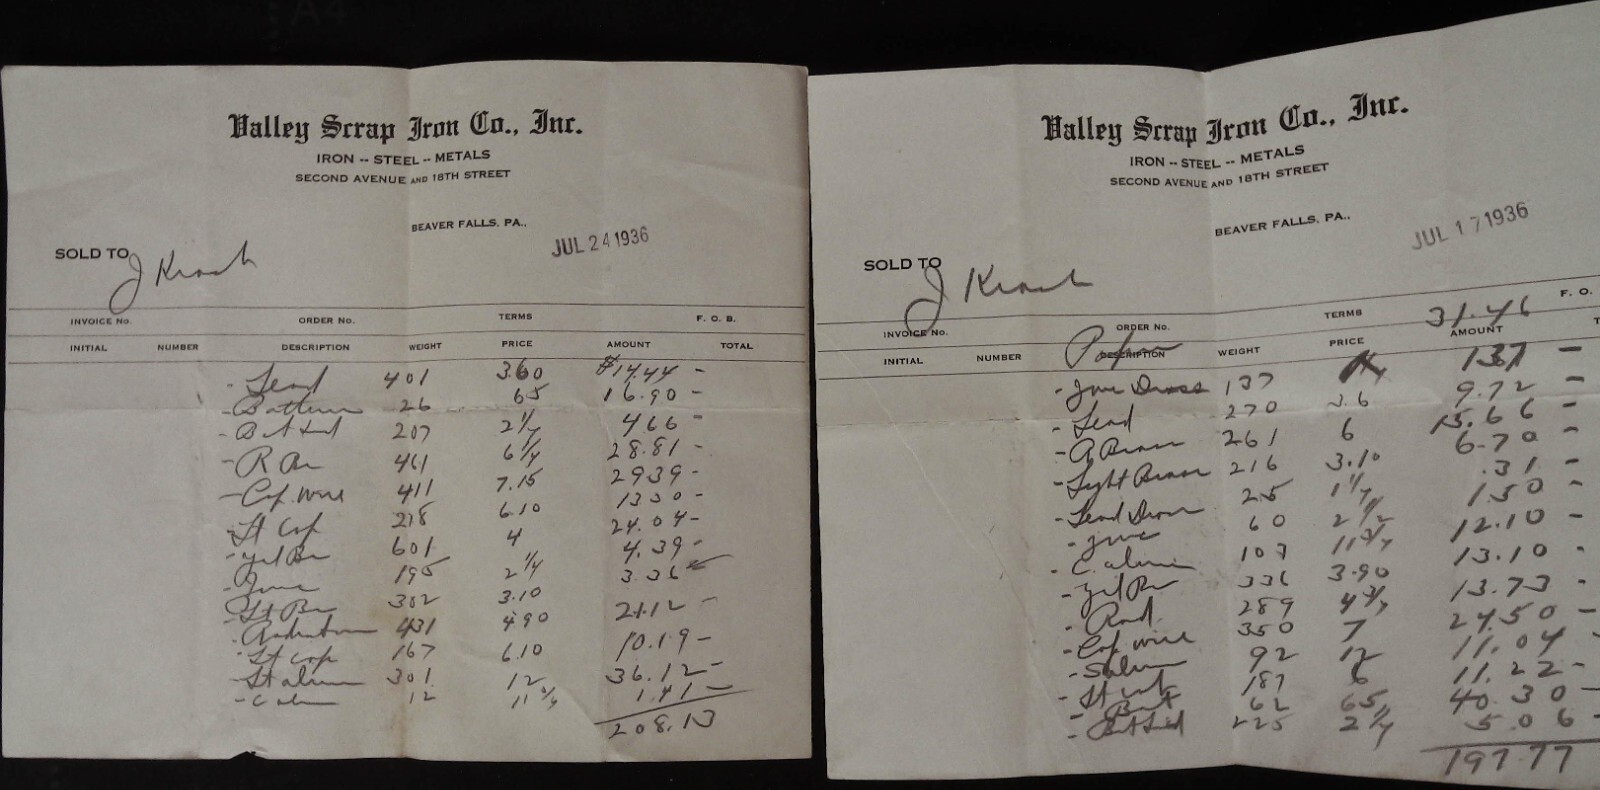 Valley Scrap Iron Co., Inc.
IRON -- STEEL -- METALS
SECOND AVENUE AND 18TH STREET
BEAVER FALLS, PA.,
JUL 24 1936
SOLD TO J
INVOICE No. ORDER No. TERMS F. O. B.
INITIAL NUMBER DESCRIPTION WEIGHT PRICE AMOUNT TOTAL
- Lead 401 3.60 $14.44 -
- 26 65 16.90 -
- Bat Lead 207 2 1/4 4 66 -
- R Br 461 6 1/4 28.81 -
- Cop. wire 411 7.15 29 39 -
- Lt Cop 218 6.10 13 30 -
- Yel Br 601 4 24.04 -
- 195 2 1/4 4.39 -
- Lt Br 3.10 3.36
- 431 4.90 21.12 -
- Lt Cop 167 6.10 10.19 -
- 301 12 36.12 -
- 12 11 3/4 1.41 -
208.13
Valley Scrap Iron Co., Inc.
IRON -- STEEL -- METALS
SECOND AVENUE AND 18TH STREET
BEAVER FALLS, PA.,
JUL 17 1936
SOLD TO J
INVOICE No. ORDER No. TERMS 31.46 F. O.
INITIAL NUMBER DESCRIPTION WEIGHT PRICE AMOUNT T
- 137 1 1.37 -
- Lead 270 3.6 9.72 -
- 261 6 15.66 -
- Light Brass 216 3.10 6.70 -
- Lead 25 1 1/4 .31 -
- 60 2 1/2 1.50 -
- 103 11 3/4 12.10 -
- Yel Br 336 3.90 13.10 -
- Rad. 289 4 3/4 13.73 -
- Cop wire 350 7 24.50 -
- 92 12 11.04 -
- 187 6 11.22 -
- Bat 62 65 40.30 -
- Bat Lead 225 2 1/4 5.06 -
197.77